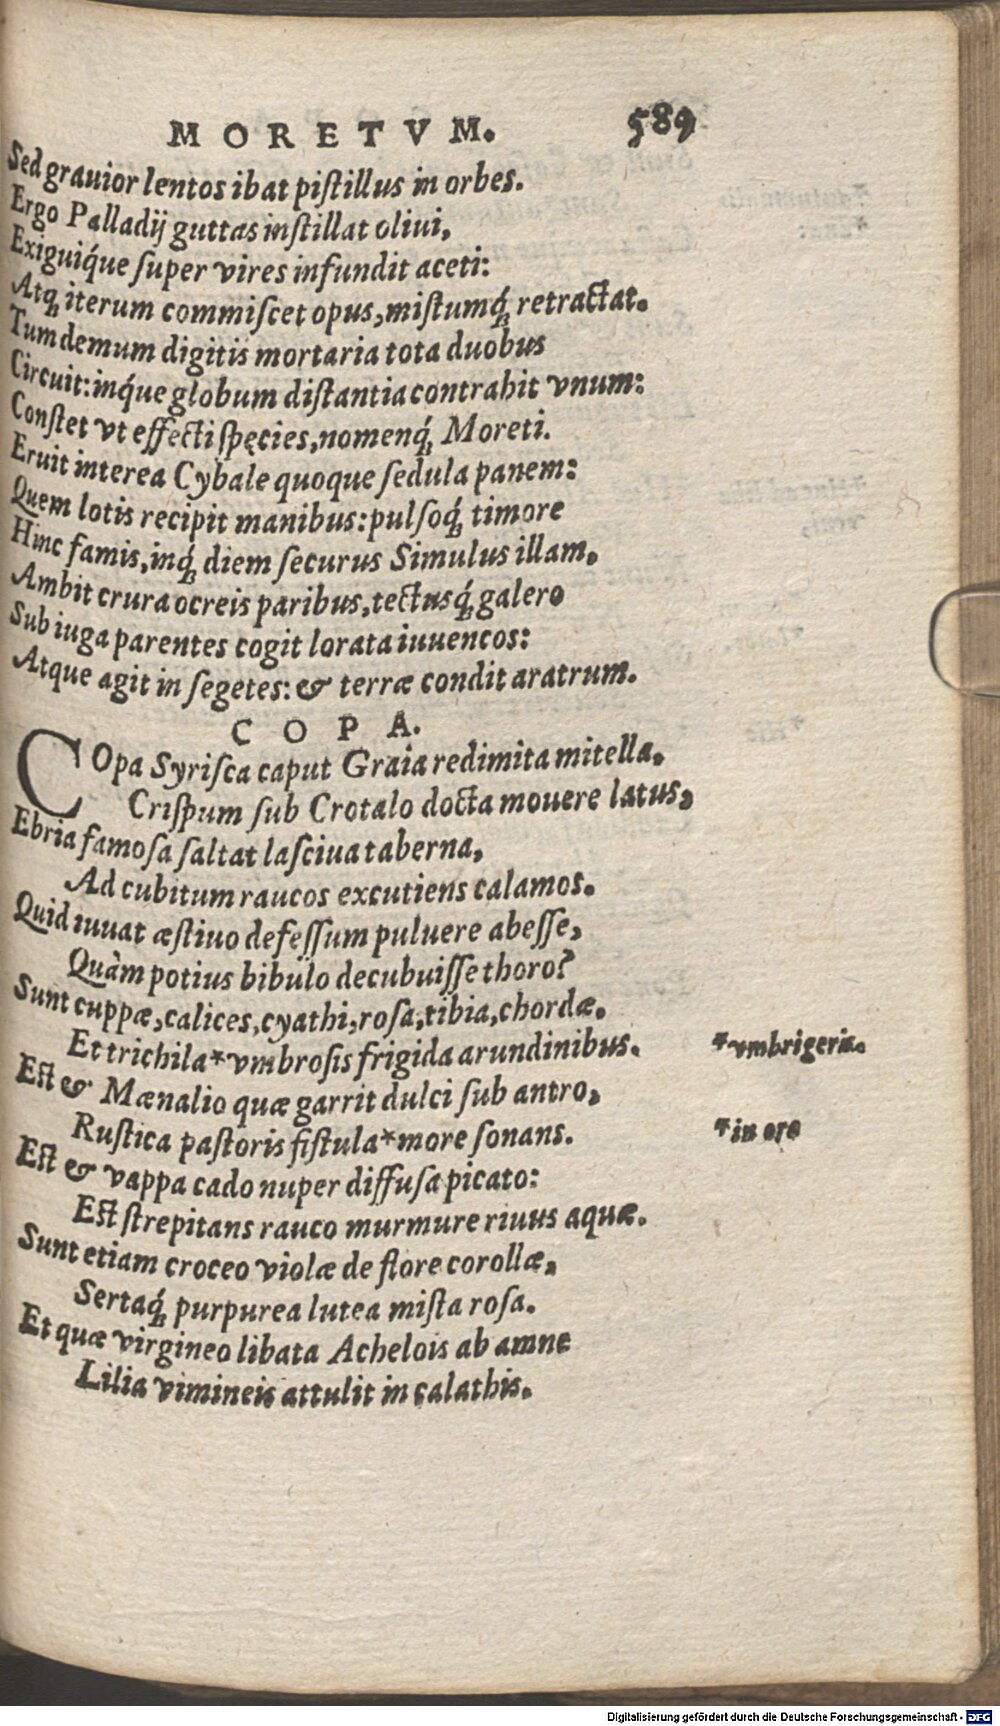 MORETVM. 589
Sed grauior lentos ibat piſtillus in orbes.
Ergo Palladij guttas inſtillat oliui,
Exiguiq́ue ſuper vires infundit aceti:
Atq; iterum commiſcet opus, miſtumq́; retractat.
Tum demum digitis mortaria tota duobus
Circuit: inq́ue globum diſtantia contrahit vnum:
Conſtet vt effecti ſpęcies, nomenq́; Moreti.
Eruit interea Cybale quoque ſedula panem:
Quem lotis recipit manibus: pulſoq́; timore
Hinc famis, inq́; diem ſecurus Simulus illam.
Ambit crura ocreis paribus, tectusq́; galero
Sub iuga parentes cogit lorata iuuencos:
Atque agit in ſegetes: & terræ condit aratrum.
COPA.
COpa Syriſca caput Graia redimita mitella.
Criſpum ſub Crotalo docta mouere latus,
Ebria famoſa ſaltat laſciua taberna,
Ad cubitum raucos excutiens calamos.
Quid iuuat æſtiuo defeſſum puluere abeſſe,
Quàm potius bibulo decubuiſſe thoro?
Sunt cuppæ, calices, cyathi, roſa, tibia, chordæ.
Et trichila*vmbroſis frigida arundinibus. *vmbrigeris.
Est & Mænalio quæ garrit dulci ſub antro,
Ruſtica paſtoris fiſtula*more ſonans. *in ore
Est & vappa cado nuper diffuſa picato:
Est ſtrepitans rauco murmure riuus aquæ.
Sunt etiam croceo violæ de flore corollæ,
Sertaq́; purpurea lutea miſta roſa.
Et quæ virgineo libata Achelois ab amne
Lilia vimineis attulit in calathis.
Digitalisierung gefördert durch die Deutsche Forschungsgemeinschaft - DFG